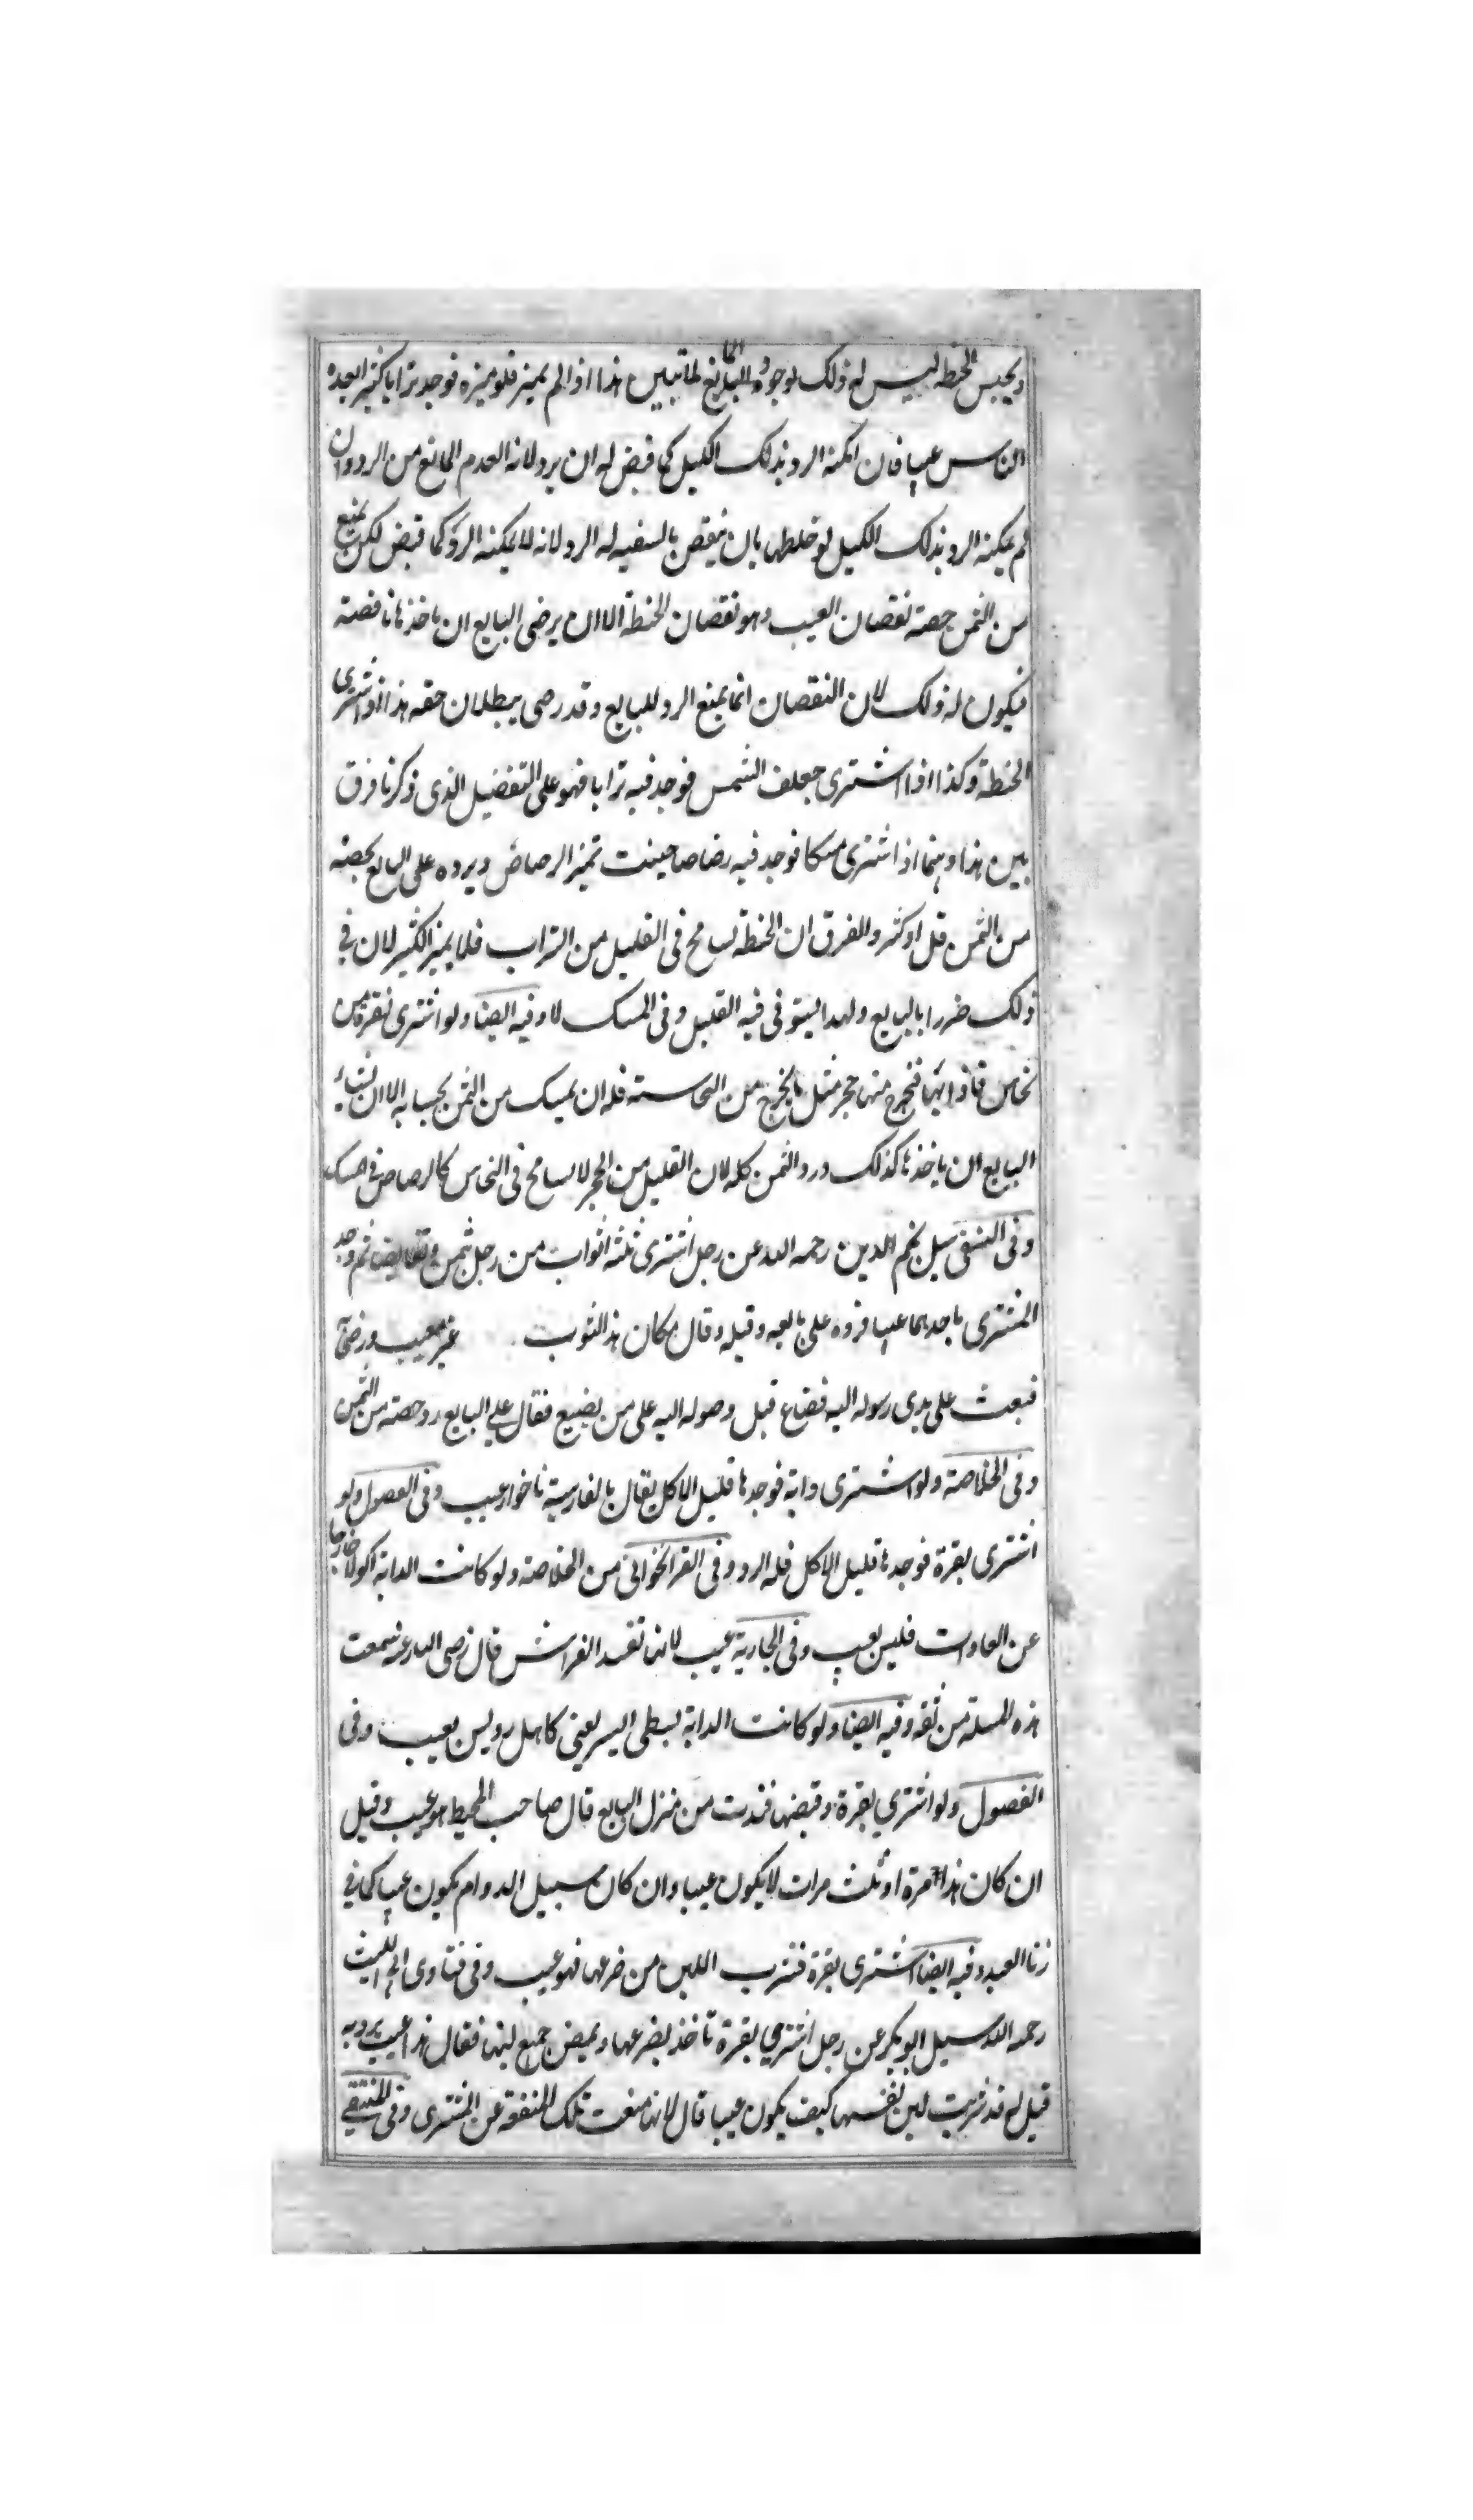 ويحبس الحنطة ليس له ذلك لوجود المانع لما تبين هذا اذا لم يميز فلو ميزه فوجد ترابا كثيرا يعده
الناس عيبا فان امكنه الرد بذلك الكيل كما قبض له ان يرد لانه العدم المانع من الرد وان
لم يمكنه الرد بذلك الكيل لو خلطها بان ينقص بالسفيه له الرد لانه لا يمكنه الرد كما قبض لكن يمنع
من الثمن حصة نقصان العيب وهو نقصان الحنطة الا ان يرضى البايع ان ياخذها ناقصة
فيكون له ذلك لان النقصان انما يمنع الرد للبايع وقد رضى ببطلان حقه هذا اذا اشترى
الحنطة وكذا اذا اشترى جعلف الشمس فوجد فيه ترابا فهو على التفضيل الذى ذكرنا فرق
بين هذا وبينما اذا اشترى مسكا فوجد فيه رصاصا حيث تميز الرصاص ويرده على البايع بحصته
من الثمن قل او كثر والفرق ان الحنطة تسامح فى القليل من التراب فلما يميز الكثير لان فى
ذلك ضررا بالبايع ولهذا ليستوفى فيه القليل وفى المسك لا وفيه ايضا ولو اشترى نقرة من
نحاس فاذابتها فخرج منها حجر مثل ما يخرج من النحاسته فله ان يمسك من الثمن بحسابه الا ان يشاء
البايع ان ياخذها كذلك ورد الثمن كله لان القليل من الحجر لا يسامح فى النحاس كالرصاص فى المسك
وفى النسفى سيل نجم الدين رحمه الله عن رجل اشترى ثلثة اثواب من رجل بثمن وتقابضا ثم وجد
المشترى باحدهما عيبا فرده على بايعه وقبله وقال مكان هذا الثوب غير معيب ورضى
فبعث على يدى رسوله اليه فضاع قبل وصوله اليه على من يضيع فقال على البايع رد حصته من الثمن
وفى الخلاصة ولو اشترى دابة فوجدها قليل الاكل يقال بالفارسية ناخوار عيب وفى الفصول ولو
اشترى بقرة فوجدها قليل الاكل فله الرد وفى القراخوانى من الخلاصة ولو كانت الدابة اكولا خارجا
عن العادات فليس بعيب وفى الجارية عيب لانها تفسد الفراش قال رضى الله عنه سمعت
هذه المسلة من ثقة وفيه ايضا ولو كانت الدابة لبطى السير يعنى كاهل رو ليس بعيب وفى
الفصول ولو اشترى بقرة وقبضها فندت من منزل البايع قال صاحب المحيط هو عيب وقيل
ان كان هذا مرة او ثلث مرات لا يكون عيبا وان كان سبيل الدوام يكون عيبا كما فى
زنا العبد وفيه ايضا اشترى بقرة فتشرب اللبن من ضرعها فهو عيب وفى فتاوى ابى الليث
رحمه الله سيل ابو بكر عن رجل اشترى بقرة تاخذ بضرعها ويمص جميع لبنها فقال هذا عيب يرد به
قيل له قد شربت لبن نفسها كيف يكون عيبا قال لانها منعت تلك المنفعة عن المشترى وفى المنتقى